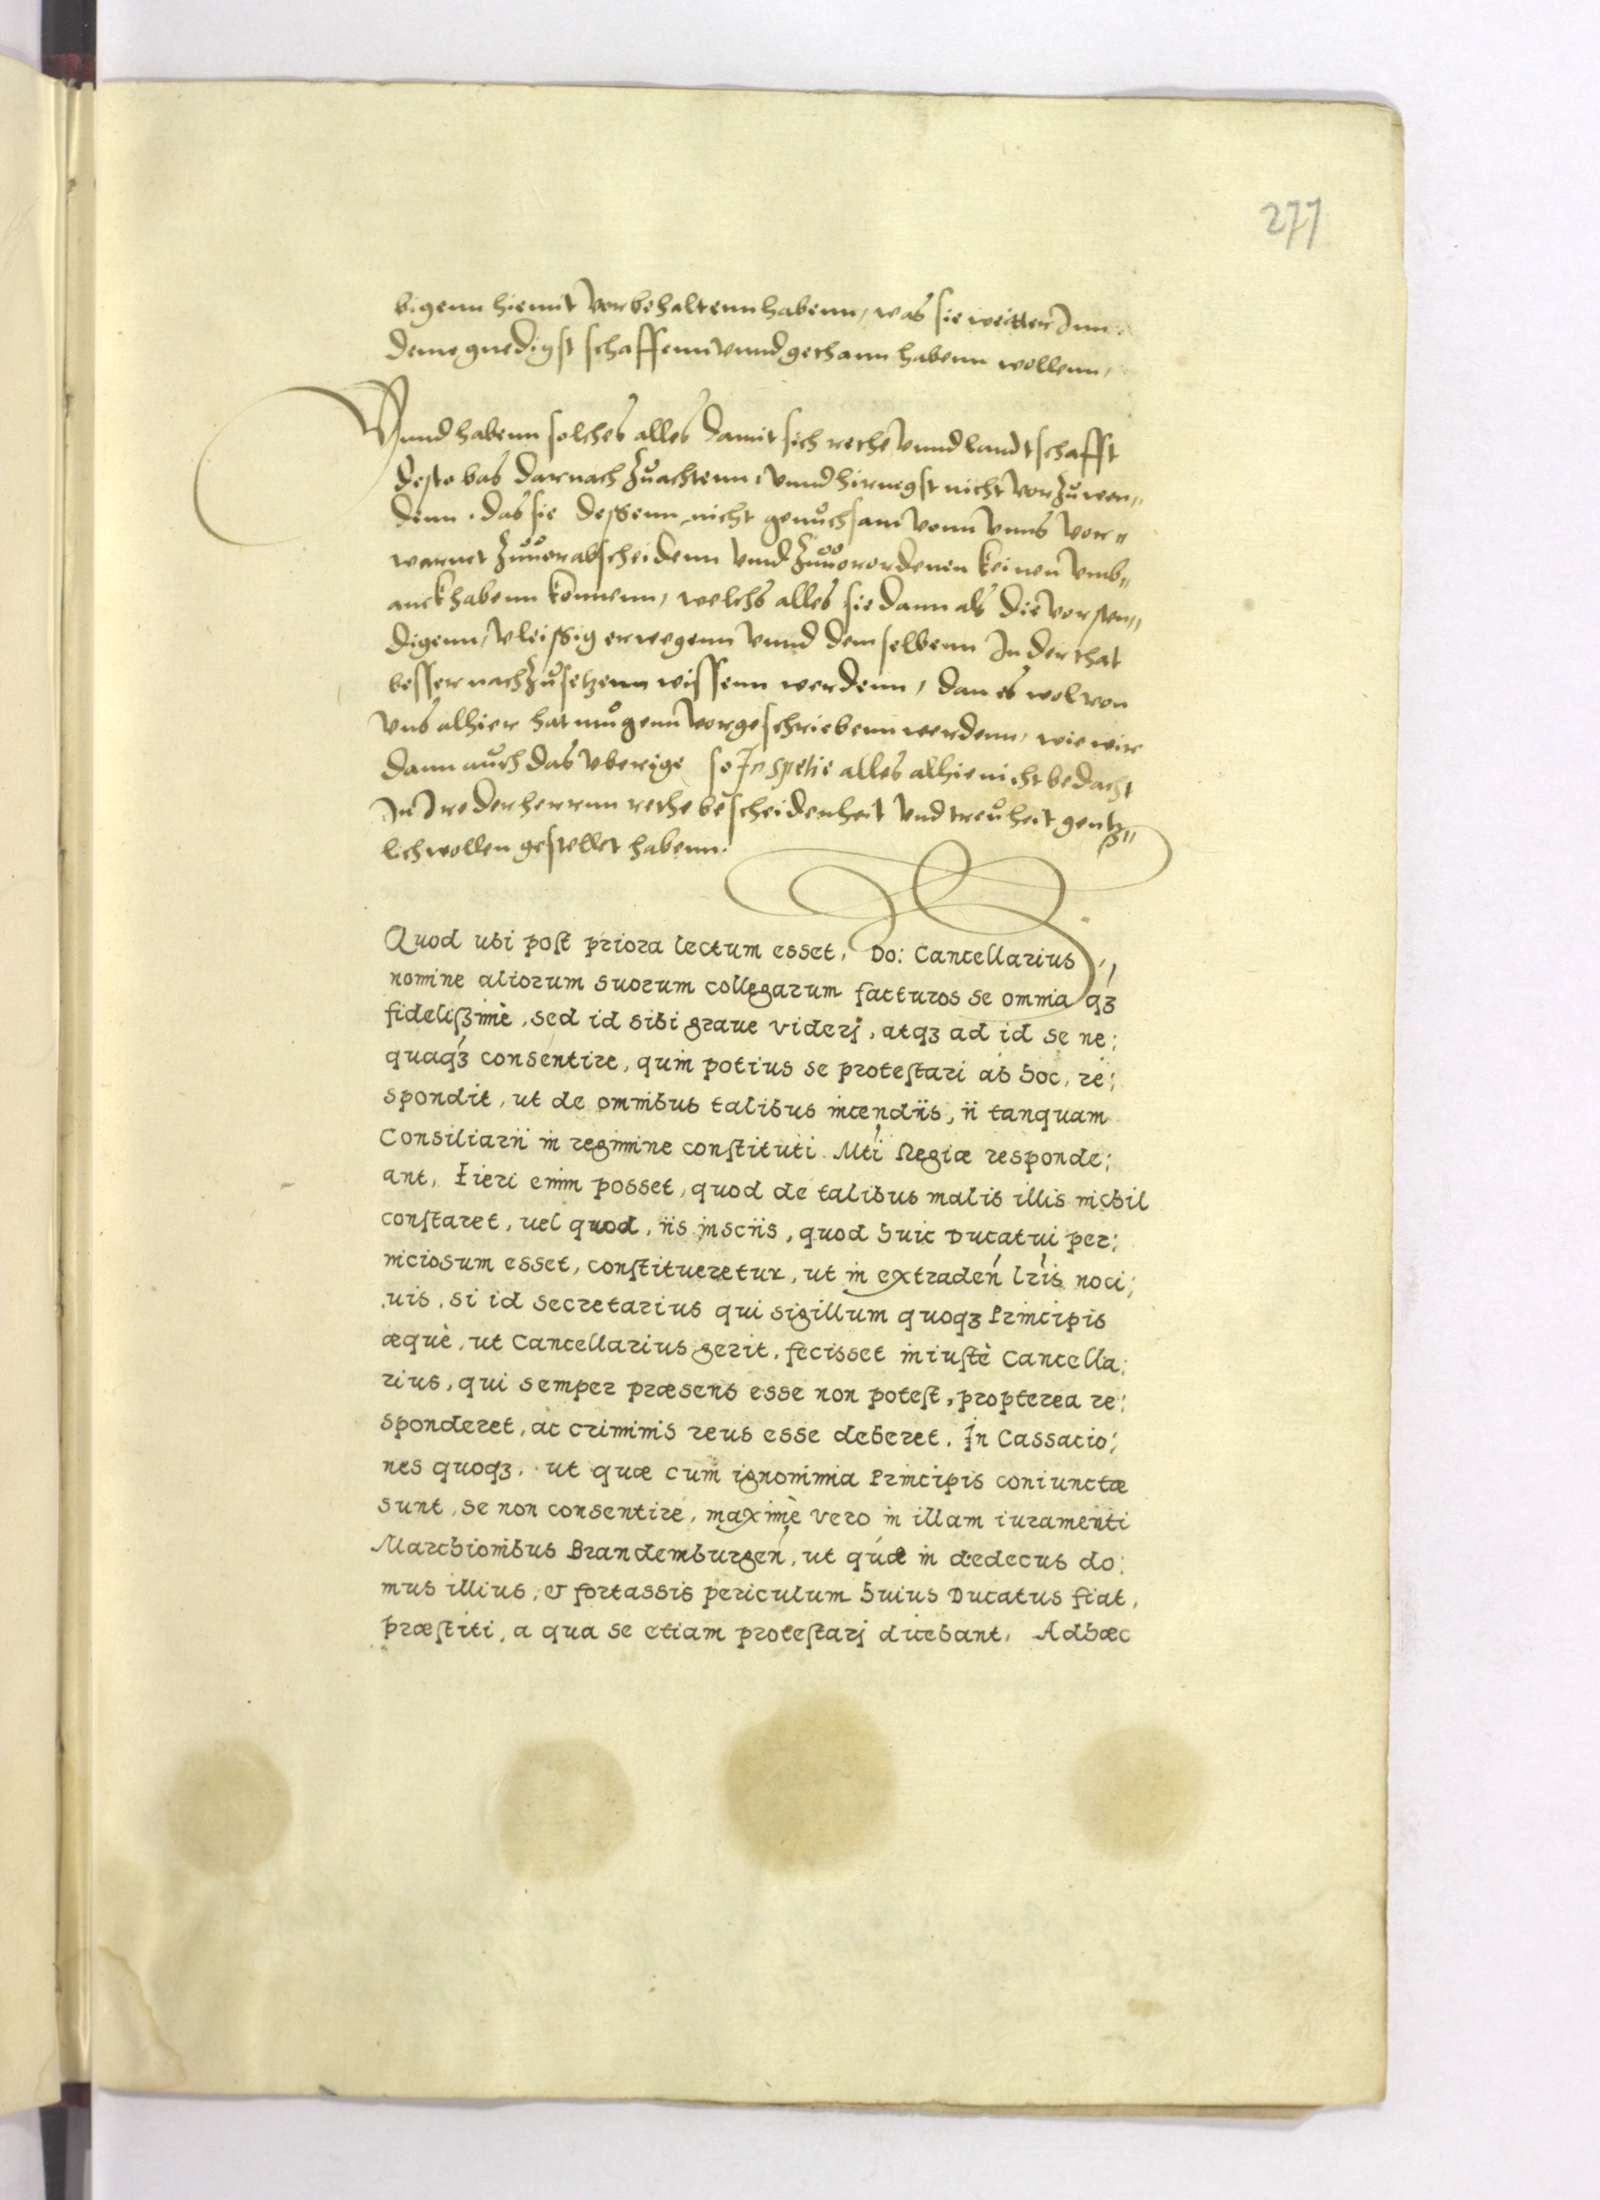 277
bigenn hiemit vorbehaltenn habenn, was sie weitter Inn
deme gnedigst schaffenn vnnd gethann habenn wollenn,
Vnnd habenn solches alles damit sich rethe vnnd landtschafft
desto bas darnach zuachtenn, vnnd hirnegst nicht vorzuwen„
denn. das sie dessenn nicht genuchsam vonn vnns vor„
warnet zuuorabscheidenn vnnd zuuorordenen keinen vmb„
anck habenn konnenn, welchs alles sie dann als die vorsten„
digenn, vleissig erwegenn vnnd demselbenn In der that
besser nachzusetzenn wissenn werdenn, dan es wol von
vns alhier hat mugenn vorgeschriebenn werdenn, wie wir
dann auch das vberige so In spetie alles alhie nicht bedacht
In Ire der herrnn rethe bescheidenheit vnd treuheit gentz„
lich wollen gestellet habenn.
Quod ubi post priora lectum esset, Do: Cancellarius
nomine aliorum suorum collegarum facturos se omnia qʒ
fidelißimè, sed id sibi graue viderj, atqʒ ad id se ne:
quaqʒ́ consentire, quin potius se protestari ab hoc, re:
spondit, ut de omnibus talibus incendiis, ii tanquam
Consiliarii in regimine constituti Mti Regiæ responde:
ant, Fieri enim posset, quod de talibus malis illis nichil
constaret, uel quod, iis insciis, quod huic Ducatui per:
niciosum esset, constitueretur, ut in extradeń lr̃is noci:
uis, si id secretarius qui sigillum quoqʒ Principis
æquè, ut Cancellarius gerit, fecisset iniustè Cancella:
rius, qui semper præsens esse non potest, propterea re:
sponderet, ac criminis reus esse deberet. In Cassacio:
nes quoqʒ, ut quæ cum ignominia Principis coniunctæ
sunt, se non consentire, maximè vero in illam iuramenti
Marchionibus Brandemburgeń, ut quæ in dedecus do:
mus illius, & fortassis periculum huius Ducatus fiat,
præstiti, a qua se etiam protestarj dicebant, Adhæc